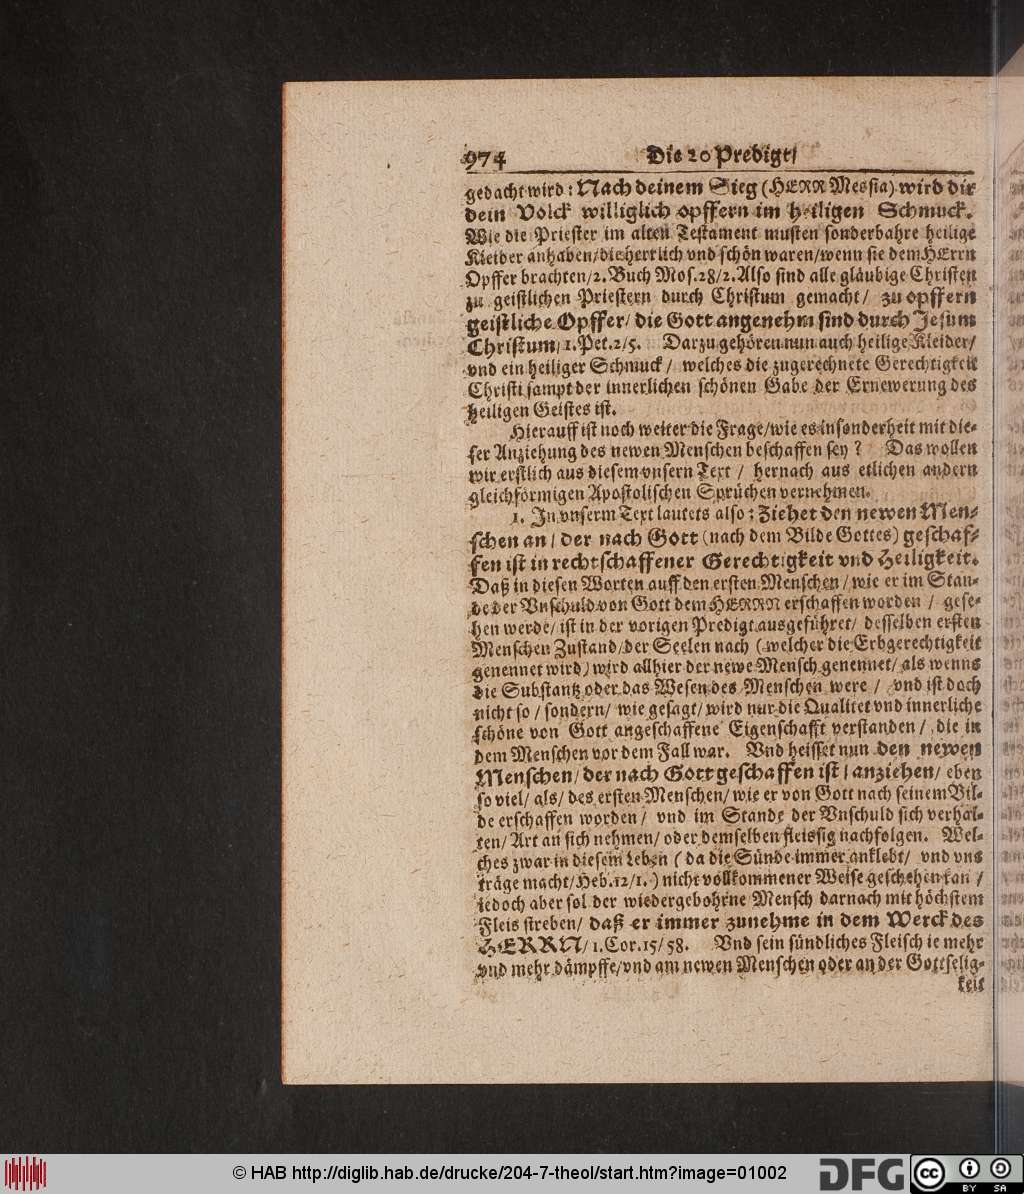 974 Die 20 Predigt/
gedacht wird: Nach deinem Sieg (HERR Messia) wird dir
dein Volck williglich opffern im heiligen Schmuck.
Wie die Priester im alten Testament musten sonderbahre heilige
Kleider anhaben/die herrlich vnd schön waren/wenn sie dem HErrn
Opffer brachten/2. Buch Mos. 28/2. Also sind alle gläubige Christen
zu geistlichen Priestern durch Christum gemacht/ zu opffern
geistliche Opffer/ die Gott angenehm sind durch Jesum
Christum/1. Pet. 2/5. Darzu gehören nun auch heilige Kleider/
vnd ein heiliger Schmuck/ welches die zugerechnete Gerechtigkeit
Christi sampt der innerlichen schönen Gabe der Ernewerung des
heiligen Geistes ist.
Hierauff ist noch weiter die Frage/wie es insonderheit mit die-
ser Anziehung des newen Menschen beschaffen sey? Das wollen
wir erstlich aus diesem vnsern Text/ hernach aus etlichen andern
gleichförmigen Apostolischen Sprüchen vernehmen.
1. In vnserm Text lautets also: Ziehet den newen Men-
schen an/ der nach Gott (nach dem Bilde Gottes) geschaf-
fen ist in rechtschaffener Gerechtigkeit vnd Heiligkeit.
Daß in diesen Worten auff den ersten Menschen/ wie er im Stan-
de der Vnschuld von Gott dem HERRN erschaffen worden/ gese-
hen werde/ ist in der vorigen Predigt ausgeführet/ desselben ersten
Menschen Zustand/der Seelen nach (welcher die Erbgerechtigkeit
genennet wird) wird allhier der newe Mensch genennet/ als wenns
die Substantz oder das Wesen des Menschen were/ vnd ist doch
nicht so/ sondern/ wie gesagt/ wird nur die Qualitet vnd innerliche
schöne von Gott angeschaffene Eigenschafft verstanden/ die in
dem Menschen vor dem Fall war. Vnd heisset nun den newen
Menschen/ der nach Gott geschaffen ist/ anziehen/ eben
so viel/ als/ des ersten Menschen/ wie er von Gott nach seinem Bil-
de erschaffen worden/ vnd im Stande der Vnschuld sich verhal-
ten/ Art an sich nehmen/ oder demselben fleissig nachfolgen. Wel-
ches zwar in diesem Leben (da die Sünde immer anklebt/ vnd vns
träge macht/Heb. 12/1.) nicht vollkommener Weise geschehen kan/
iedoch aber sol der wiedergebohrne Mensch darnach mit höchstem
Fleis streben/ daß er immer zunehme in dem Werck des
HERRN/1. Cor. 15/58. Vnd sein sündliches Fleisch ie mehr
vnd mehr dämpffe/vnd am newen Menschen oder an der Gottselig-
keit
© HAB http://diglib.hab.de/drucke/204-7-theol/start.htm?image=01002
DFG
cc BY SA